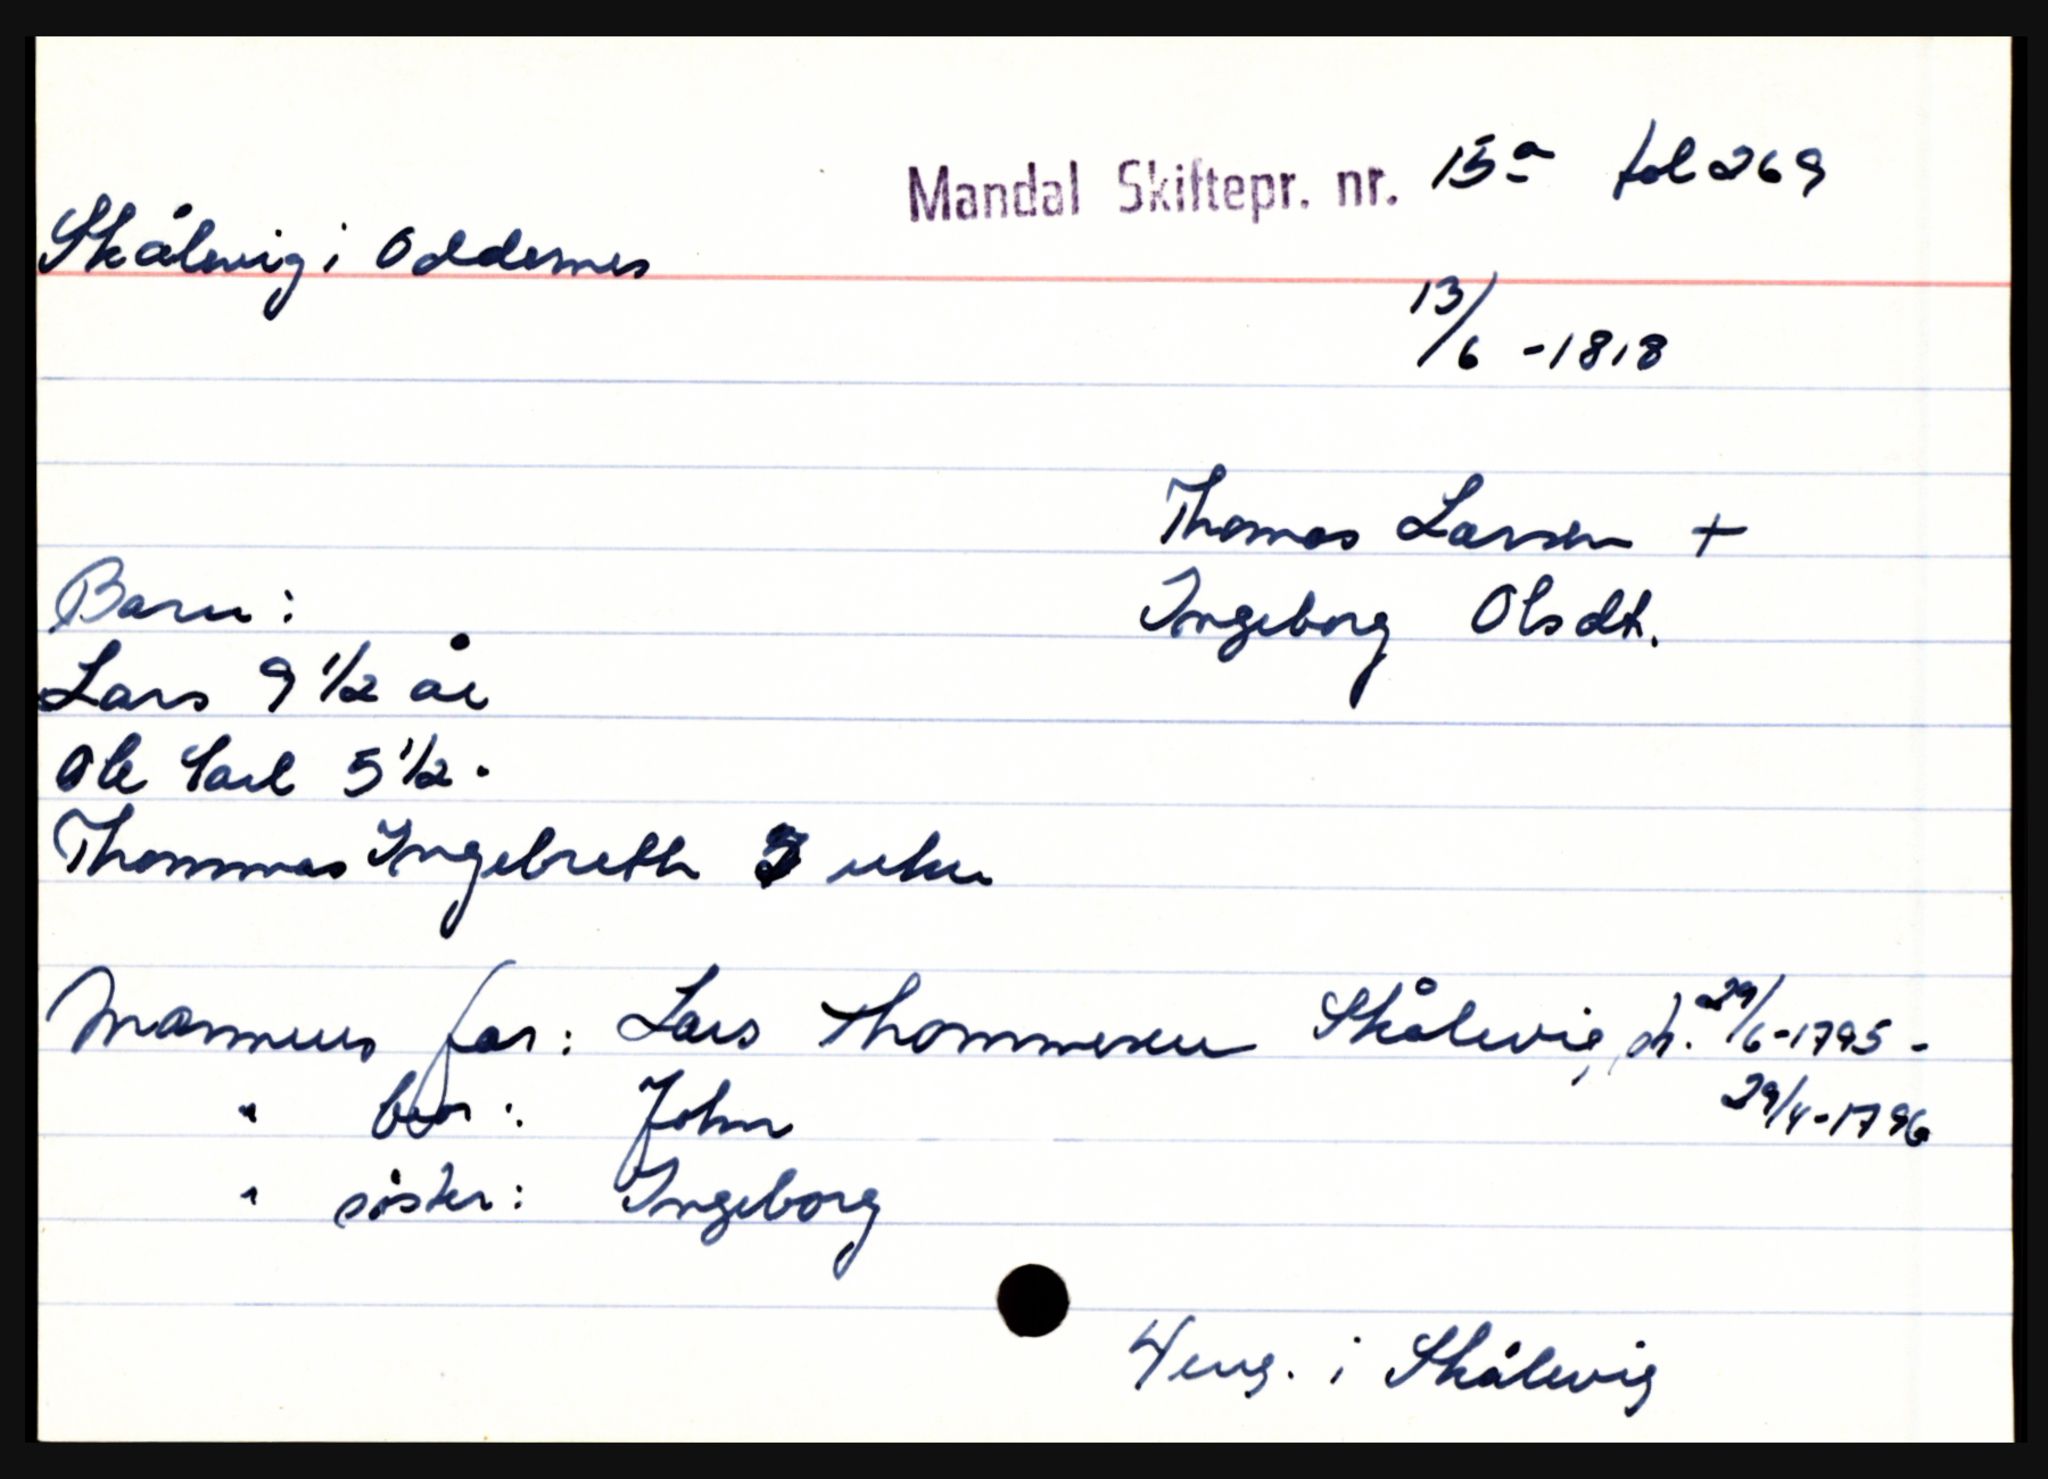 Mandal Skiftepr. nr. 15a fol 269
Skålevig i Oddernes
13/6 - 1818
Thomas Larsen +
Ingeborg Olsdt.
Barn:
Lars 9 1/2 år
Ole Carl 5 1/2 "
Thommas Ingebreth uker
Mannens far: Lars Thommesen Skålevig, sk. 29/6-1795 -
29/4-1796
" bror: John
" søster: Ingeborg
4 eng. i Skålevig